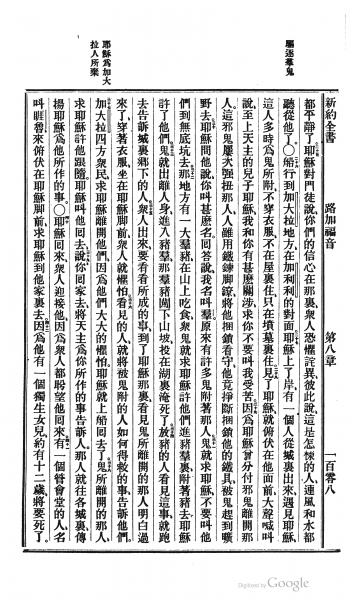 驅逐羣鬼
耶穌爲加大
拉人所棄
新約全書 路加福音 第八章 一百零八
都平靜了、耶穌對門徒說、你們的信心在那裏、衆人恐懼詫異、彼此說、這是怎樣的人、連風和水都
聽從他了〇船行到加大拉地方、在加利利的對面、耶穌上了岸、有一個人從城裏出來、遇見耶穌、
這人多時爲鬼所附、不穿衣服、不在屋裏住、只在墳墓裏住、見了耶穌、就俯伏在他面前、大聲喊叫
說、至上天主的兒子耶穌、我和你有甚麽關涉、求你不要叫我受苦、因爲耶穌曾分付邪鬼離開那
人、這邪鬼屢次强扭那人、人雖用鐵鏈脚鐐、將他捆鎖看守、他竟掙斷捆鎖他的鐵具、被鬼趕到曠
野去、耶穌問他說、你叫甚麽名、回答說、我名叫羣、原來有許多鬼附著那人、鬼就求耶穌、不要叫他
們到無底坑去、那地方有一大羣豬、在山上吃食、衆鬼就求耶穌許他們進豬羣裏、附著豬去、耶穌
許了他們、鬼就出離人身、進入豬羣、那羣豬闖下山坡、投在湖裏淹死了、放豬的人看見這事、就跑
去告訴城裏鄉下的人、衆人出來、要看看所成的事、到了耶穌那裏、看見鬼所離開的那人、明白過
來了、穿著衣服、坐在耶穌脚前、衆人就懼怕、看見的人、就將被鬼附的人如何得救的事、告訴他們、
加大拉四方衆民、求耶穌離開他們、因爲他們大大的懼怕、耶穌就上船回去了、鬼所離開的那人、
求耶穌許他跟隨、耶穌叫他回去、說、你回家去、將天主爲你所作的事告訴人、那人就往各城裏傳
揚耶穌爲他所作的事、〇耶穌回來、衆人迎接他、因爲衆人都盼望他回來、有一個管會堂的人、名
叫睚魯、來俯伏在耶穌脚前、求耶穌到他家裏去、因爲他有一個獨生女兒、約有十二歲、將要死了、
Digitized by Google